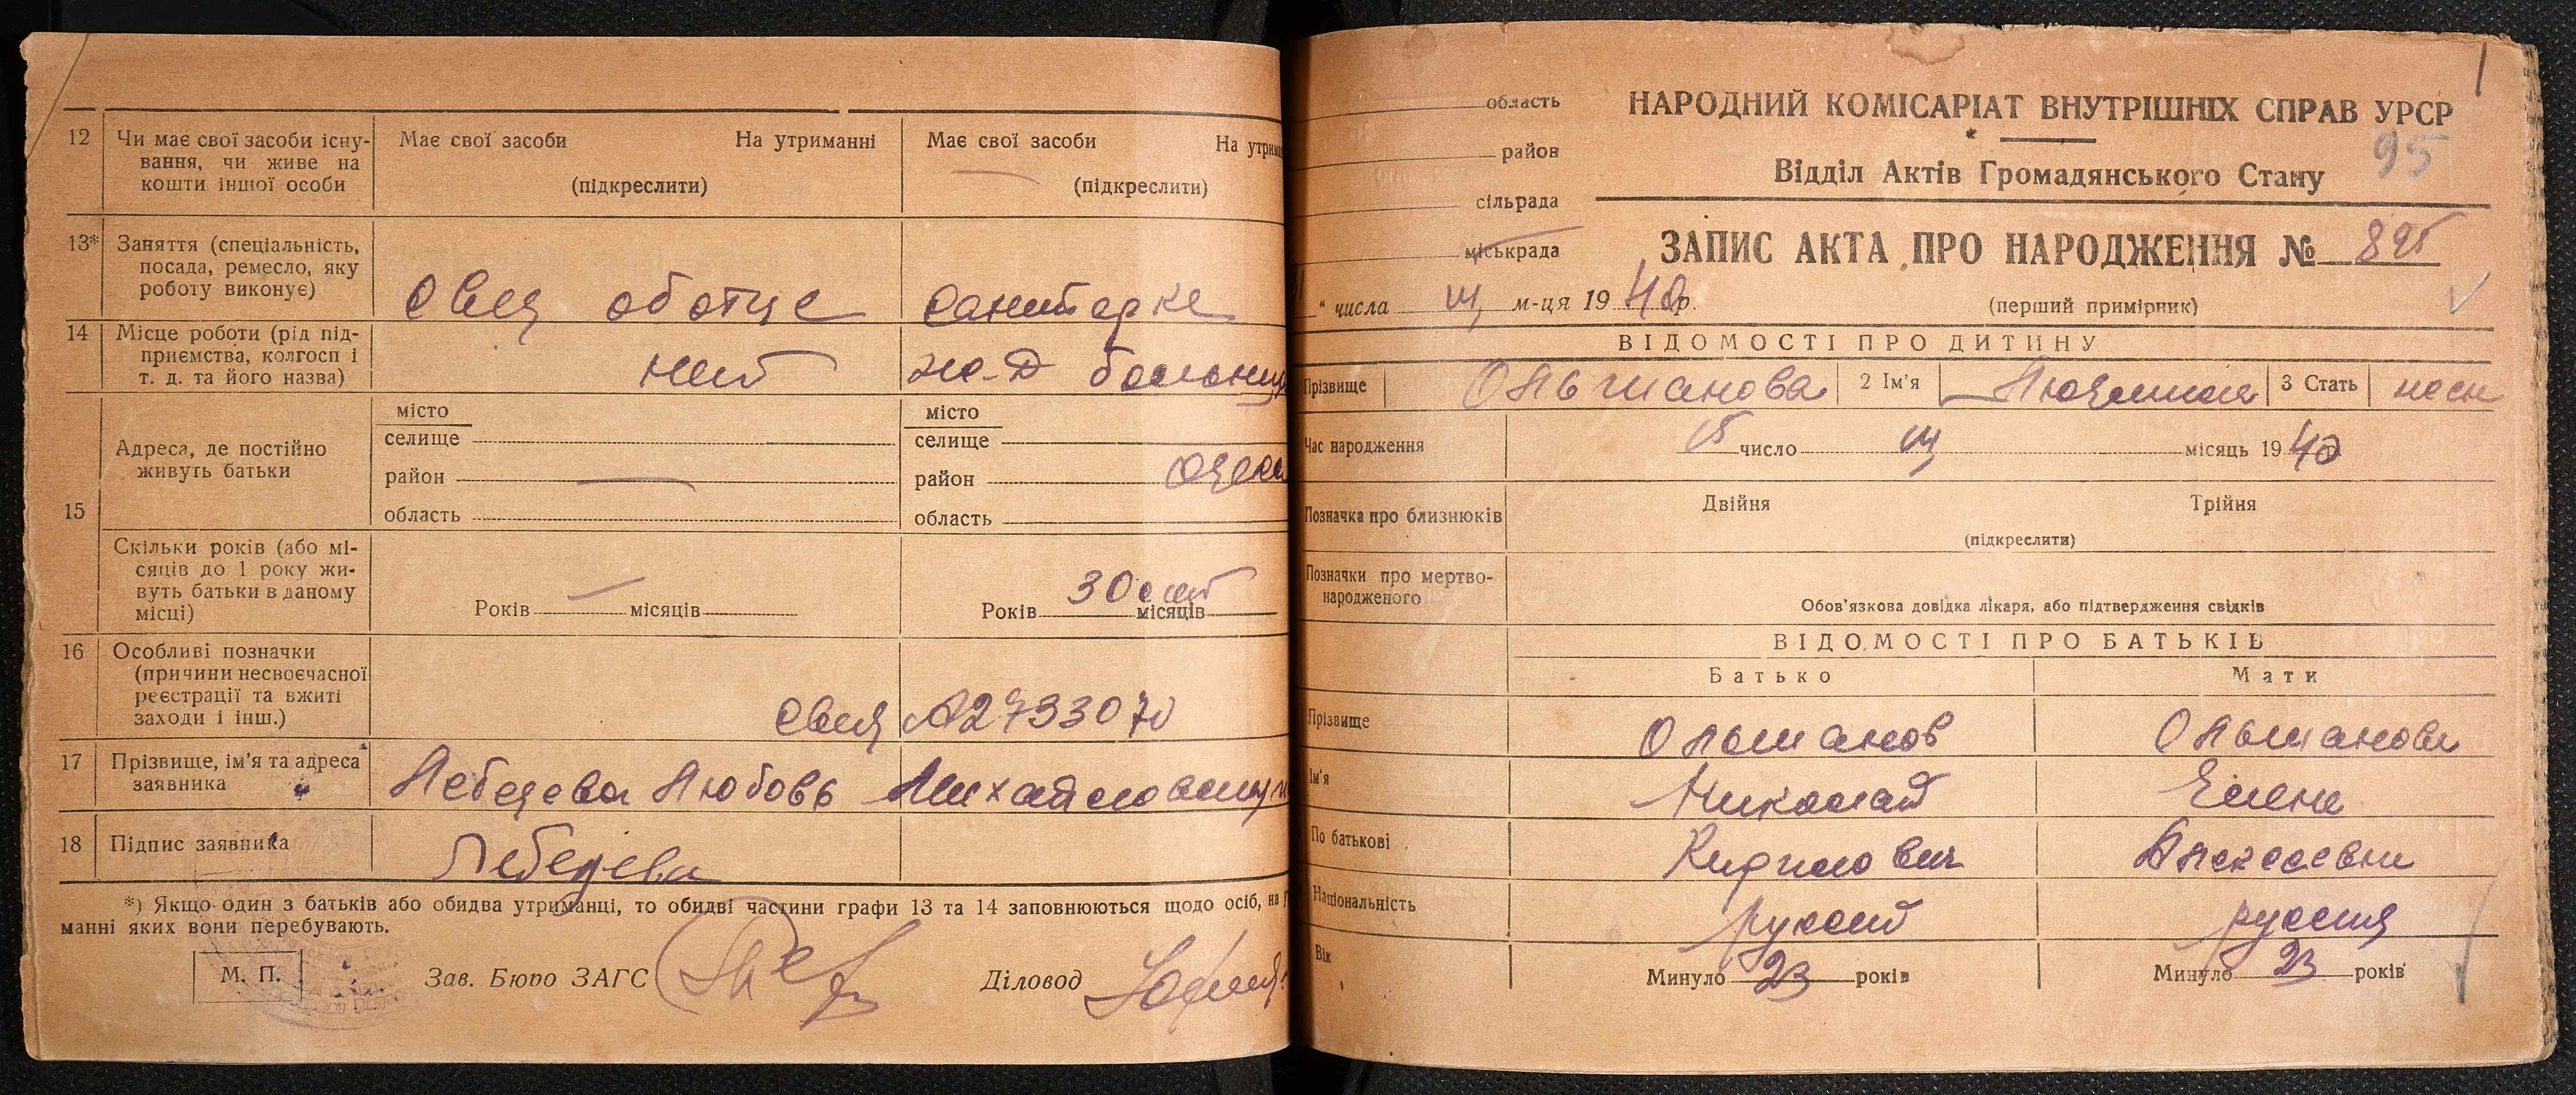 12 Чи має свої засоби існу-
вання, чи живе на
кошти іншої особи
Має свої засоби На утриманні
(підкреслити)
Має свої засоби
(підкреслити)
13* Заняття (спеціальність,
посада, ремесло, яку
роботу виконує)
свед об отце
санитарка
14 Місце роботи (рід під-
приємства, колгосп і
т. д. та його назва)
нет
ж-д
15 Адреса, де постійно
живуть батьки
місто
селище
район
область
місто
селище
район
область
Скільки років (або мі-
сяців до 1 року жи-
вуть батьки в даному
місці)
Років — місяців
Років 30 лет місяців
16 Особливі позначки
(причини несвоєчасної
реєстрації та вжиті
заходи і інш.)
17 Прізвище, ім'я та адреса
заявника
Лебедева Любовь
18 Підпис заявника
Лебедева
*) Якщо один з батьків або обидва утриманці, то обидві частини графи 13 та 14 заповнюються щодо осіб, на
манні яких вони перебувають.
М. П.
Зав. Бюро ЗАГС
Діловод
область
район
сільрада
міськрада
НАРОДНИЙ КОМІСАРІАТ ВНУТРІШНІХ СПРАВ УРСР
95
Відділ Актів Громадянського Стану
ЗАПИС АКТА ПРО НАРОДЖЕННЯ № 895
(перший примірник)
" числа III м-ця 1940 р.
ВІДОМОСТІ ПРО ДИТИНУ
Прізвище Ольшанова 2 Ім'я Людмила 3 Стать жен
Час народження
число III місяць 1940
Позначка про близнюків
Двійня Трійня
(підкреслити)
Позначки про мертво-
народженого
Обов'язкова довідка лікаря, або підтвердження свідків
ВІДОМОСТІ ПРО БАТЬКІВ
Батько Мати
Прізвище Ольшанов Ольшанова
Ім'я Николай Елена
По батькові Кирилович Алексеевна
Національність русский русская
Вік Минуло 23 років Минуло 23 років